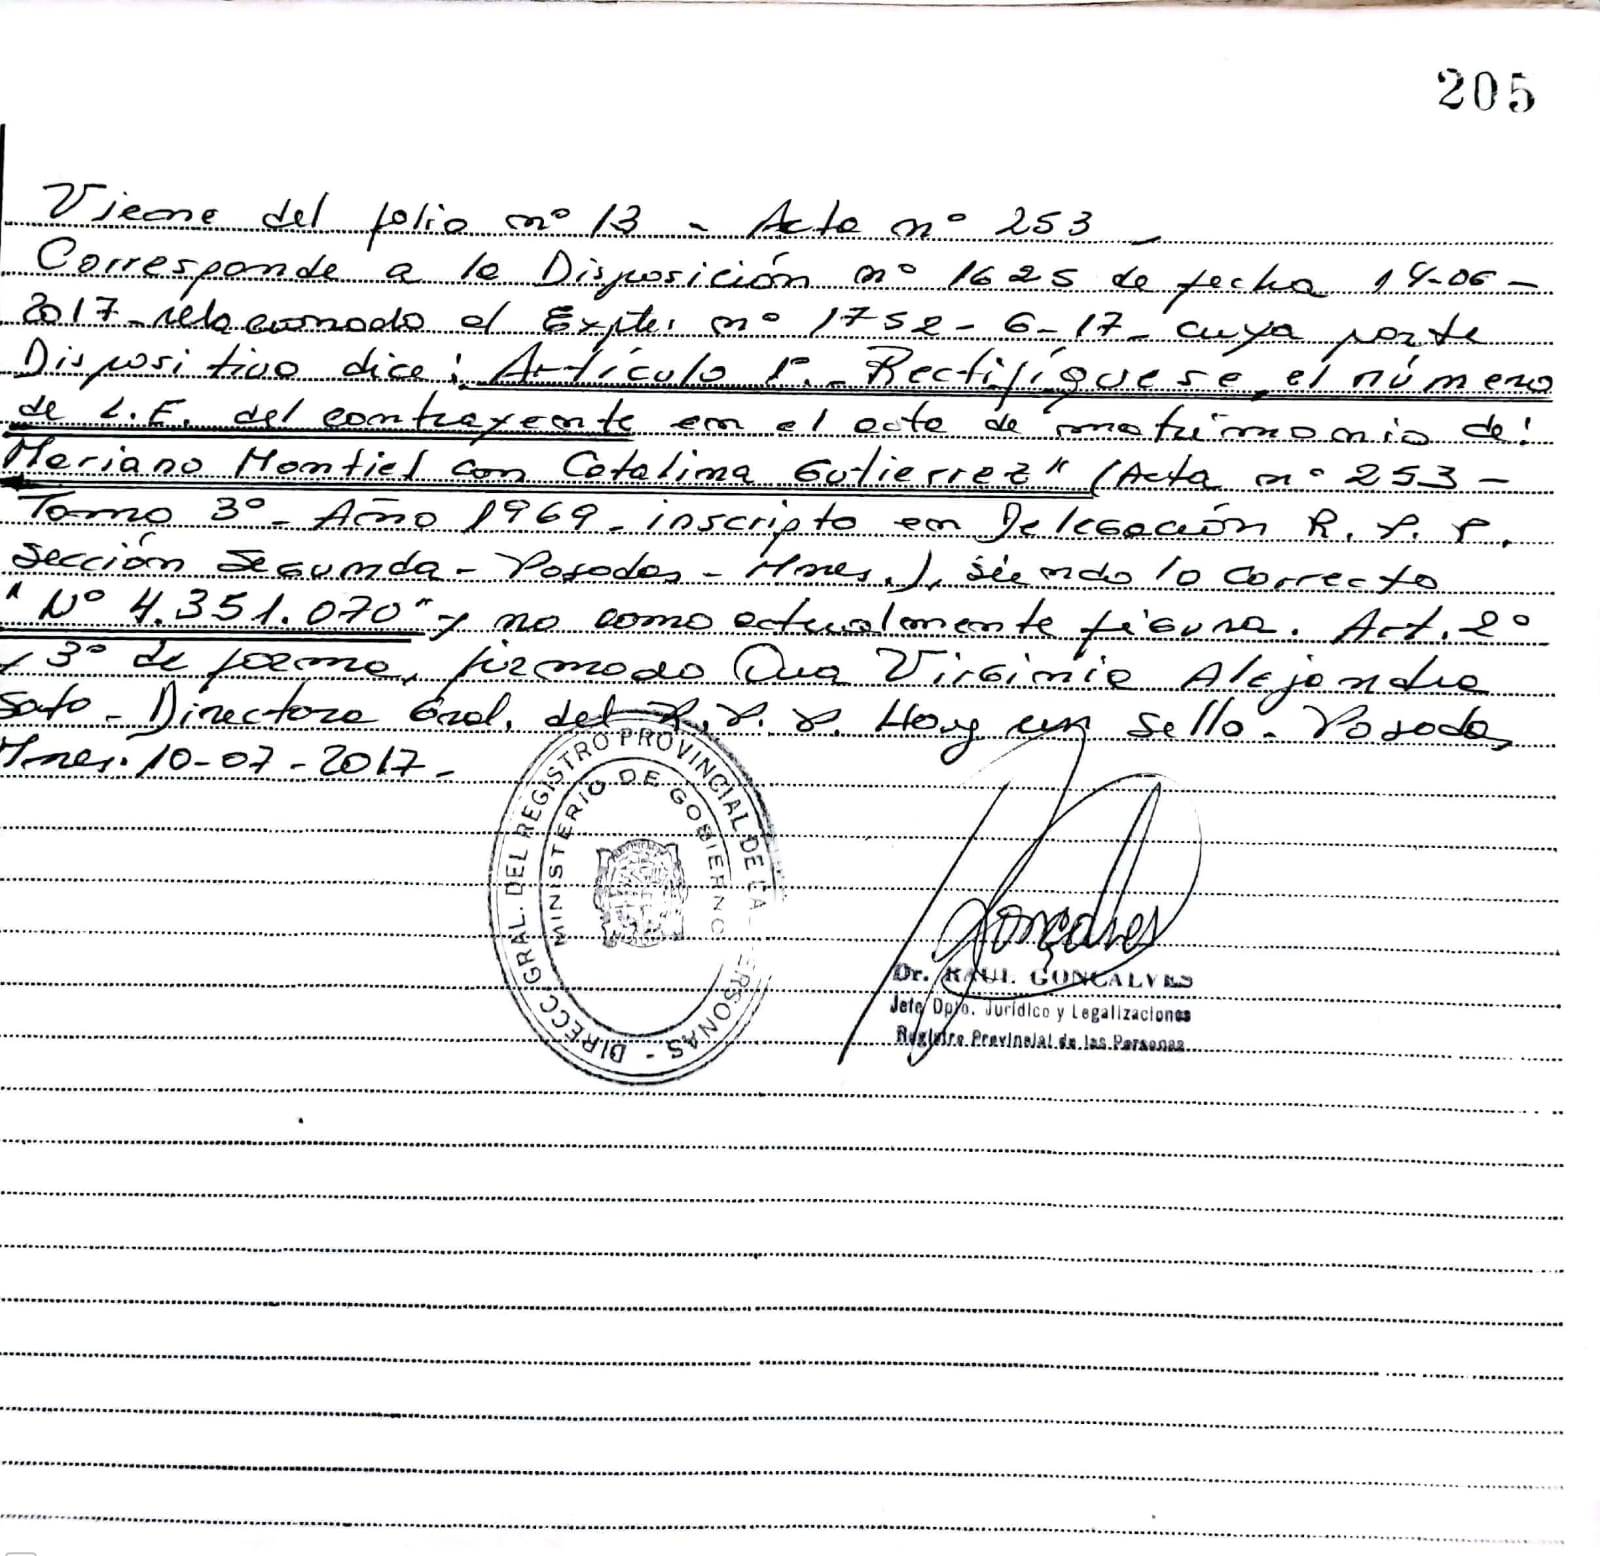 205
Viene del folio nº 13 - Acta nº 253 -
Corresponde a la Disposición nº 1625 de fecha 14-06-
2017 - relacionado el Expte. nº 1752-G-17- cuya parte
Dispositiva dice: Artículo 1º.- Rectifíquese, el número
de L.E. del contrayente en el acta de matrimonio de:
Mariano Montiel con Catalina Gutierrez" (Acta nº 253-
Tomo 3º- Año 1969- inscripto en Delegación R.P.P.
Sección Segunda - Posadas - Mnes.), siendo lo correcto
"Nº 4.351.070" y no como actualmente figura. Art. 2º
y 3º de forma, firmado Dra Virginia Alejandra
Soto - Directora Gral. del R.P.P. Hay un sello. Posadas
Mnes. 10-07-2017-
DIRECC. GRAL. DEL REGISTRO PROVINCIAL DE LA ERSONAS -
MINISTERIO DE GOBIERNO
Gonçalves
Dr. RAUL GONCALVES
Jefe Dpto. Jurídico y Legalizaciones
Registro Provincial de las Personas